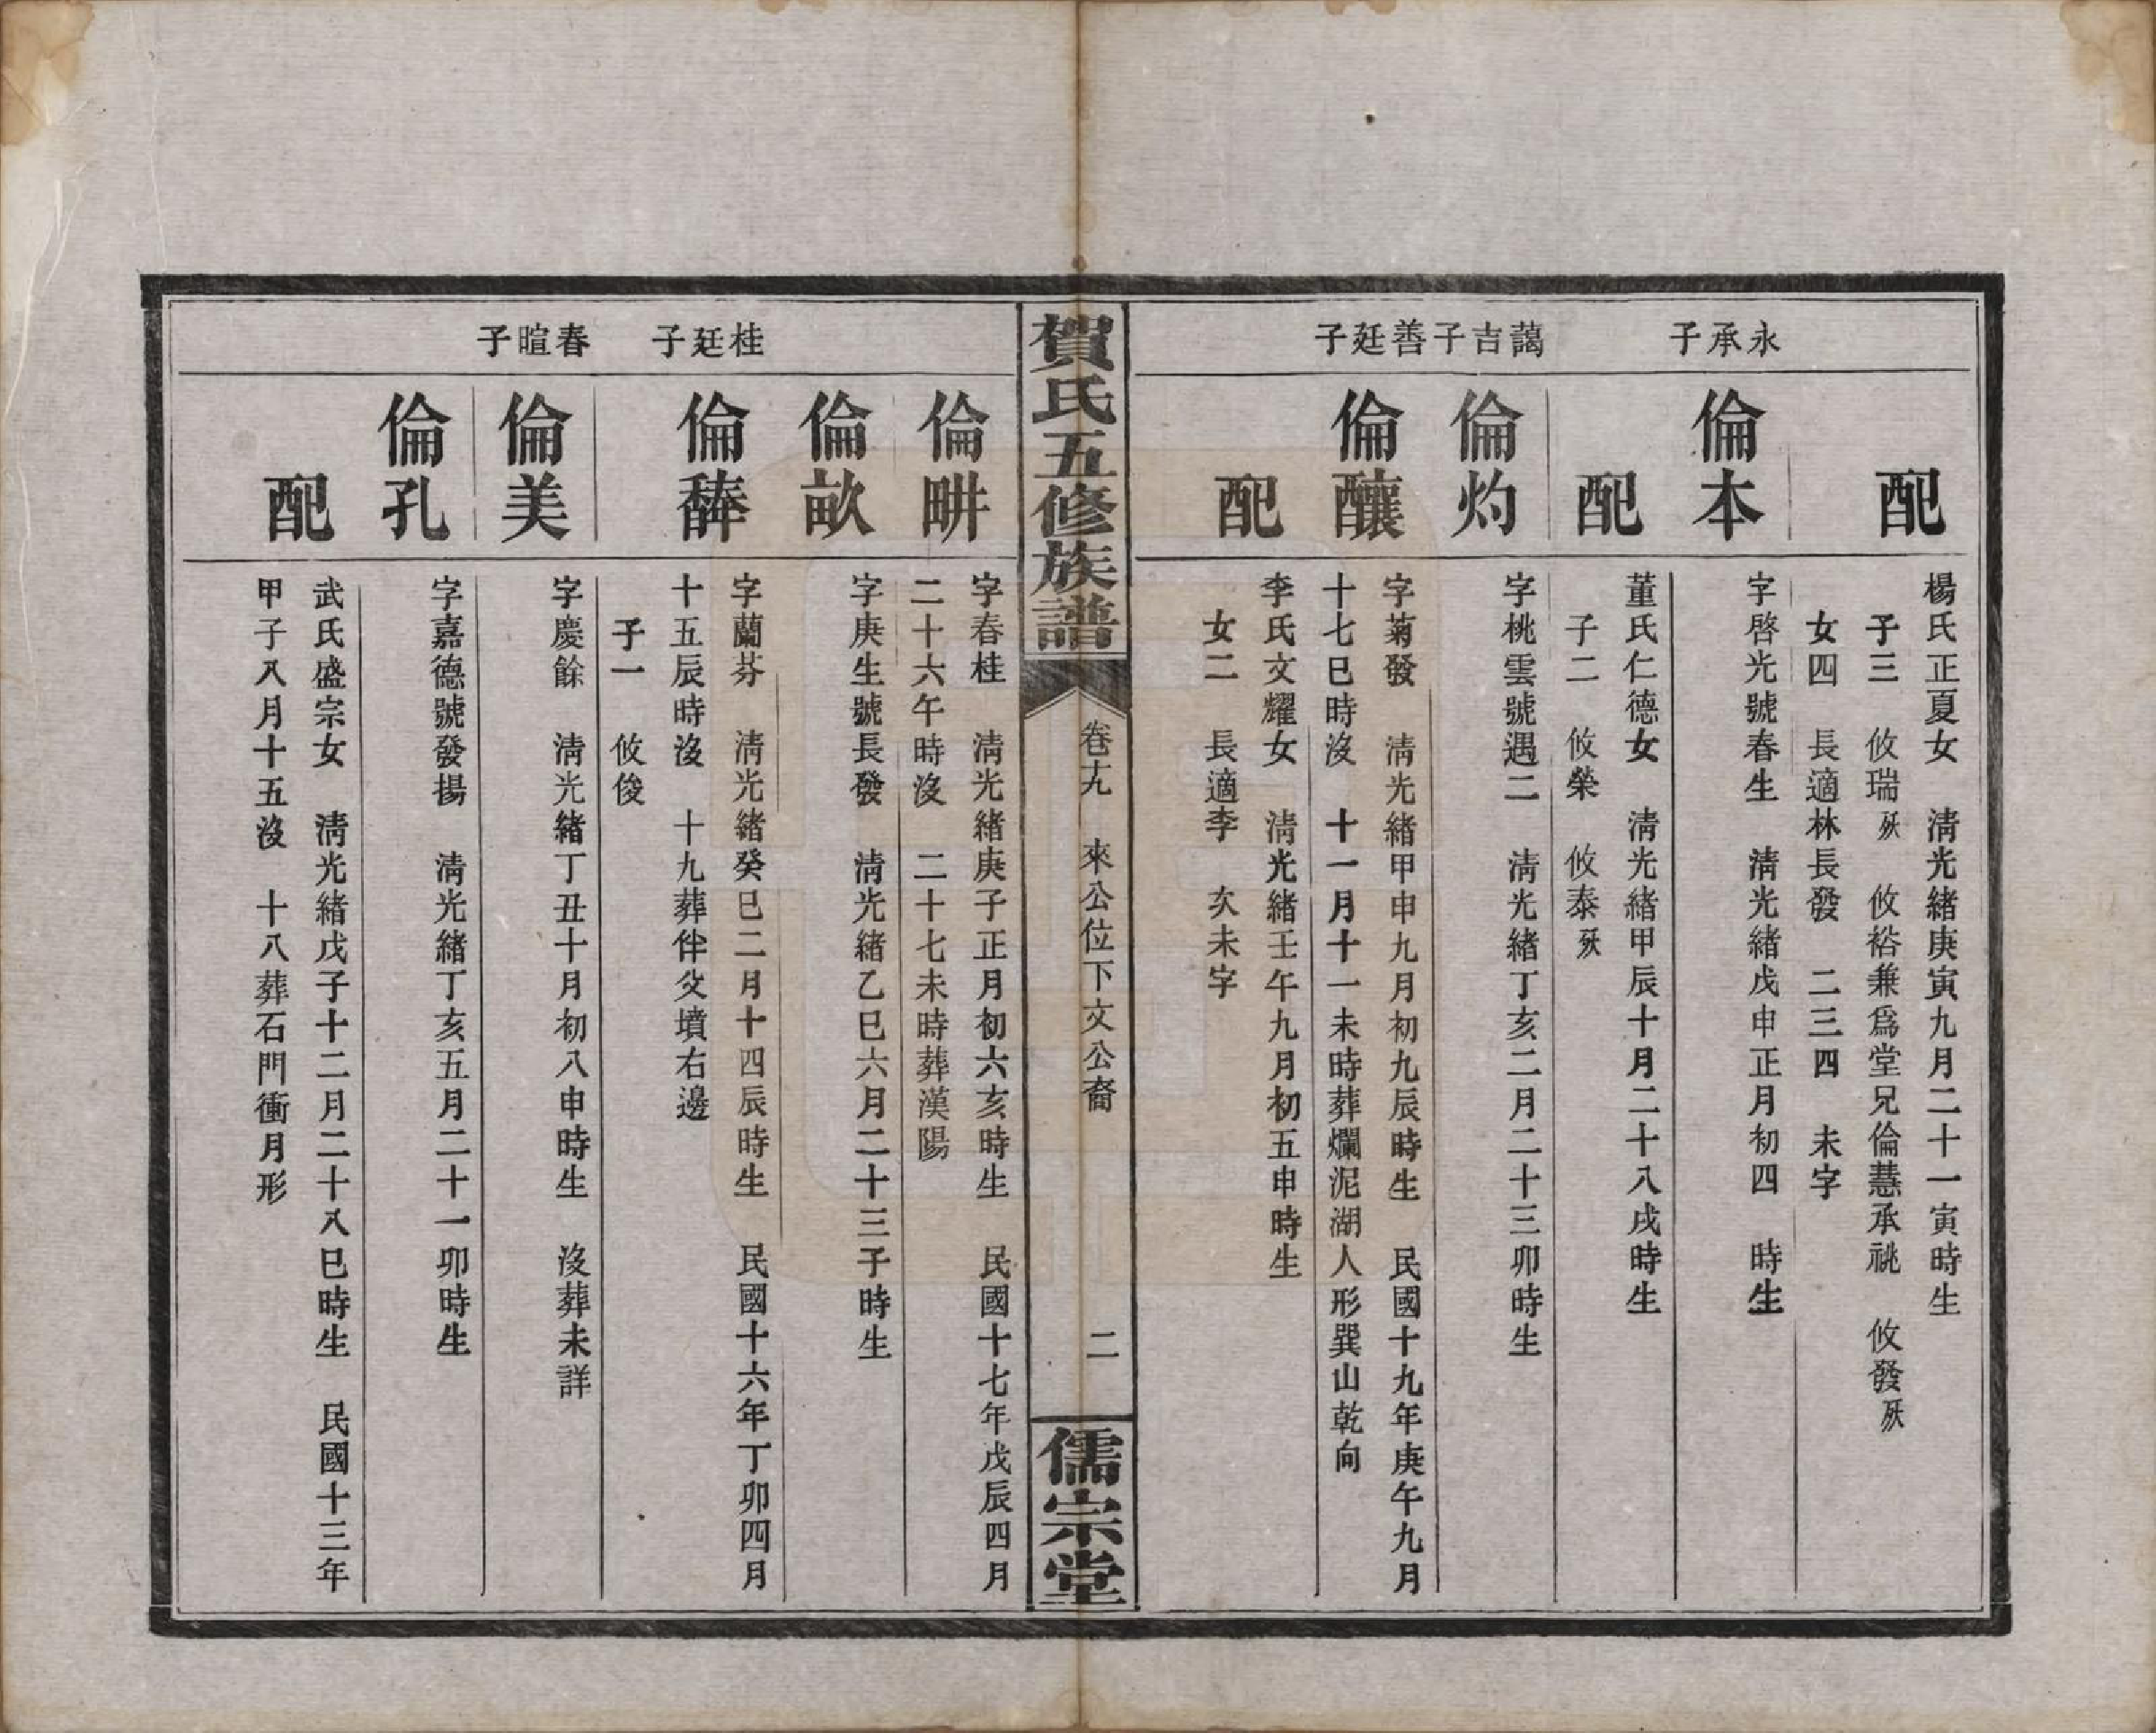 永承子
藹吉子善廷子
配
楊氏正夏女　清光緒庚寅九月二十一寅時生
子三　攸瑞殀　攸裕兼爲堂兄倫慧承祧　攸發殀
女四　長適林長發　二三四　未字
倫本
字啓光號春生　清光緒戊申正月初四　時生
配
董氏仁德女　清光緒甲辰十月二十八戌時生
子二　攸榮　攸泰殀
倫灼
字桃雲號遇二　清光緒丁亥二月二十三卯時生
倫釀
字菊發　清光緒甲申九月初九辰時生　民國十九年庚午九月
十七巳時沒　十一月十一未時葬爛泥湖人形巽山乾向
配
李氏文耀女　清光緒壬午九月初五申時生
女二　長適李　次未字
賀氏五修族譜
卷十九　來公位下文公裔　二
儒宗堂
桂廷子
春暄子
倫畊
字春桂　清光緒庚子正月初六亥時生　民國十七年戊辰四月
二十六午時沒　二十七未時葬漢陽
倫畝
字庚生號長發　清光緒乙巳六月二十三子時生
倫馞
字蘭芬　清光緒癸巳二月十四辰時生　民國十六年丁卯四月
十五辰時沒　十九葬伴父墳右邊
子一　攸俊
倫美
字慶餘　清光緒丁丑十月初八申時生　沒葬未詳
倫孔
字嘉德號發揚　清光緒丁亥五月二十一卯時生
配
武氏盛宗女　清光緒戊子十二月二十八巳時生　民國十三年
甲子八月十五沒　十八葬石門衝月形